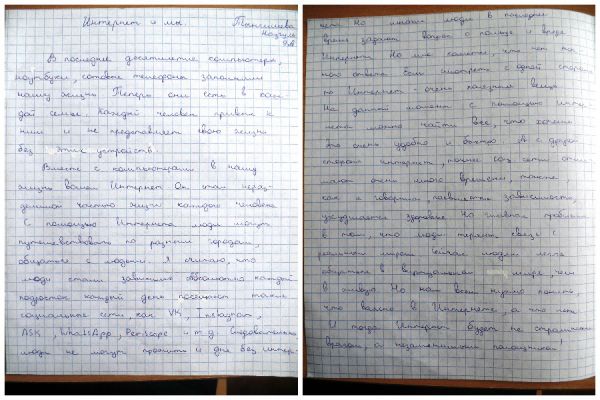 Интернет и мы.
Назгуль
В последнее десятилетие компьютеры,
ноутбуки, сотовые телефоны заполнили
нашу жизнь Теперь они есть в каж-
дой семье. Каждый человек привык к
ним и не представляет свою жизнь
без этих устройств.
Вместе с компьютерами в нашу
жизнь вошел Интернет Он стал нераз-
дельной частью жизни каждого человека
С помощью Интернета люди могут
путешествовать по разным городам,
общаться с людьми. Я считаю, что
люди стали зависимы каждый
подросток каждый день посещает такие
социальные сети, как VK, Instagram,
ASK, WhatsApp, Periscope и т.д. Следовательно
люди не могут прожить и дня без интер-
нета. Но многие люди в последнее
время задают вопрос о пользе и вреде
Интернета Но мне кажется, что нет точ-
ного ответа Если смотреть с одной стороны
то Интернет - очень полезная вещь
На данный момент с помощью интер-
нета можно найти все, что хочешь
это очень удобно и быстро А с другой
стороны интернет, точнее соц сети отни-
мают очень много времени, также
как и говорил, появляется зависимость,
ухудшается здоровье Но главная проблема
в том, что люди теряют связь с
реальным миром Сейчас людям легче
общаться в виртуальном мире, чем
в живую Но нам всем нужно понять,
что важно в Интернете, а что нет
И тогда Интернет будет не страшным
врагом, а незаменимым помощником!